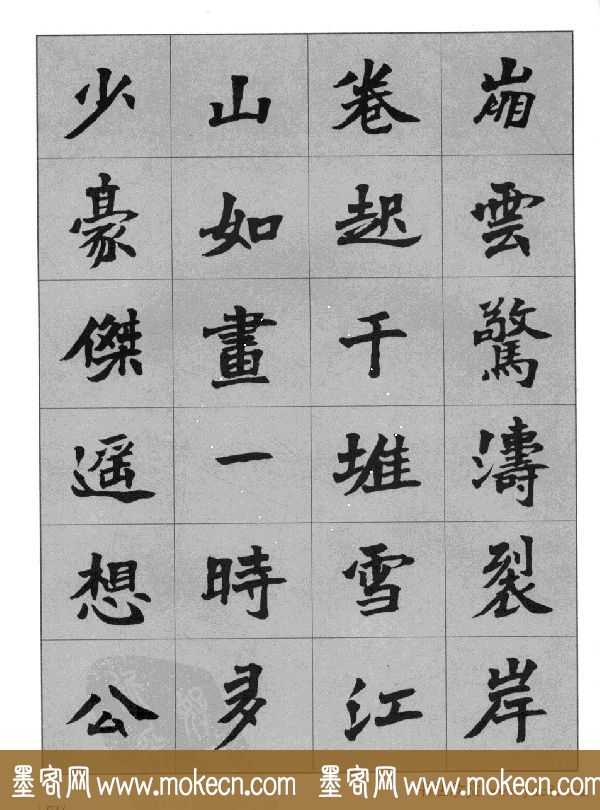 崩雲驚濤裂岸
卷起千堆雪江
山如畫一時多
少豪傑遙想公
墨客网 www.mokecn.com 墨客网 www.mokecn.com